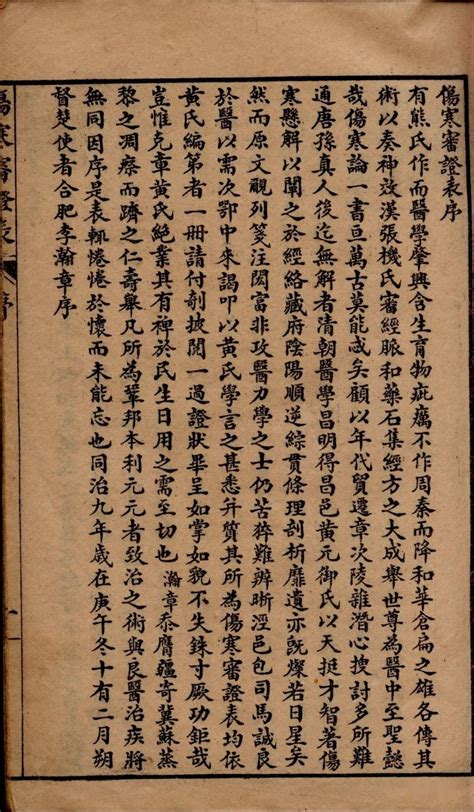 傷寒審證表序
有熊氏作而醫學肇興含生育物疵癘不作周秦而降和華倉扁之雄各傳其
術以奏神效漢張機氏審經脈和藥石集經方之大成舉世尊為醫中至聖懿
哉傷寒論一書亘萬古莫能忒矣顧以年代貿遷章次陵雜潛心披討多所難
通唐孫真人後迄無解者清朝醫學昌明得昌邑黃元御氏以天挺才智著傷
寒懸解以闡之於經絡藏府陰陽順逆綜貫條理剖析靡遺亦旣燦若日星矣
然而原文觀列箋注閎富非攻醫力學之士仍苦猝難辨晰涇邑包司馬誠良
於醫以需次鄂中來謁叩以黃氏學言之甚悉幷質其所為傷寒審證表均依
黃氏編第者一冊請付剞披閱一過證狀畢呈如掌如貌不失銖寸厥功鉅哉
豈惟克章黃氏絕業其有裨於民生日用之需至切也瀚章忝膺疆寄冀蘇蒸
黎之凋瘵而躋之仁壽舉凡所為鞏邦本利元元者致治之術與良醫治疾將
無同因序是表輒惓惓於懷而未能忘也同治九年歲在庚午冬十有二月朔
督楚使者合肥李瀚章序
傷寒審證表
序
一